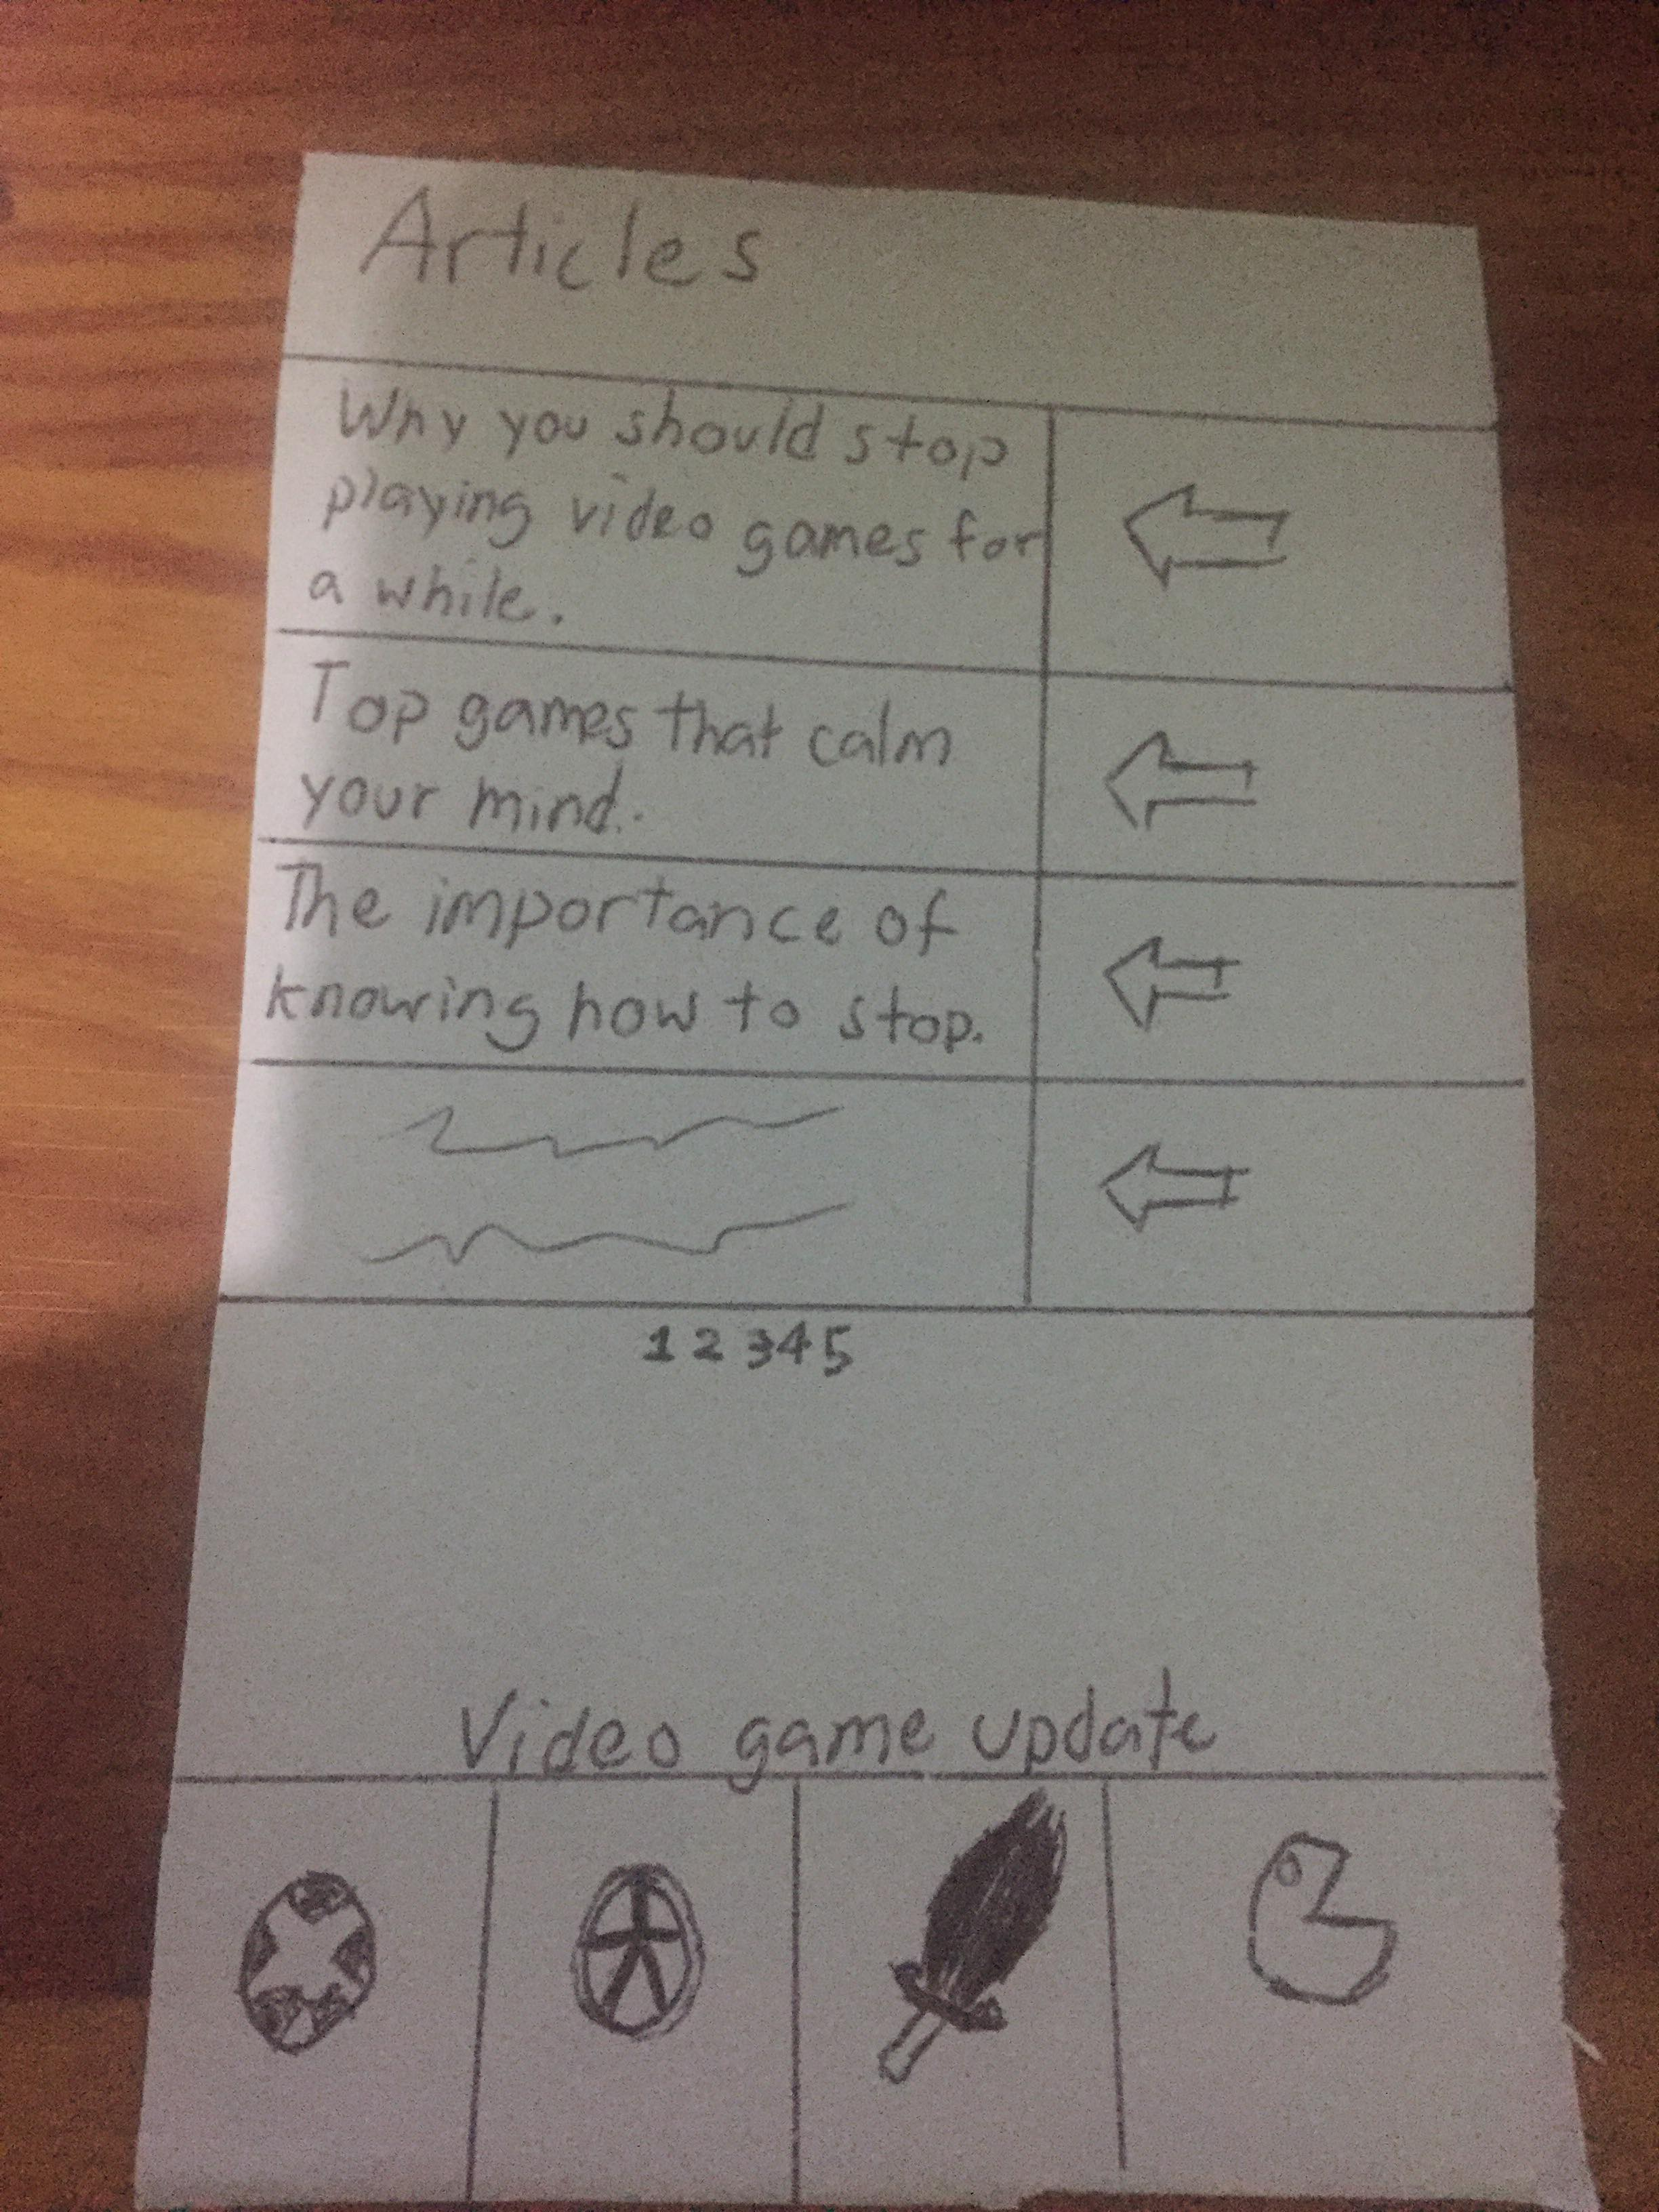 Articles
Why you should stop
playing video games for
a while.
Top games that calm
your mind.
The importance of
knowing how to stop.
1 2 3 4 5
Video game update